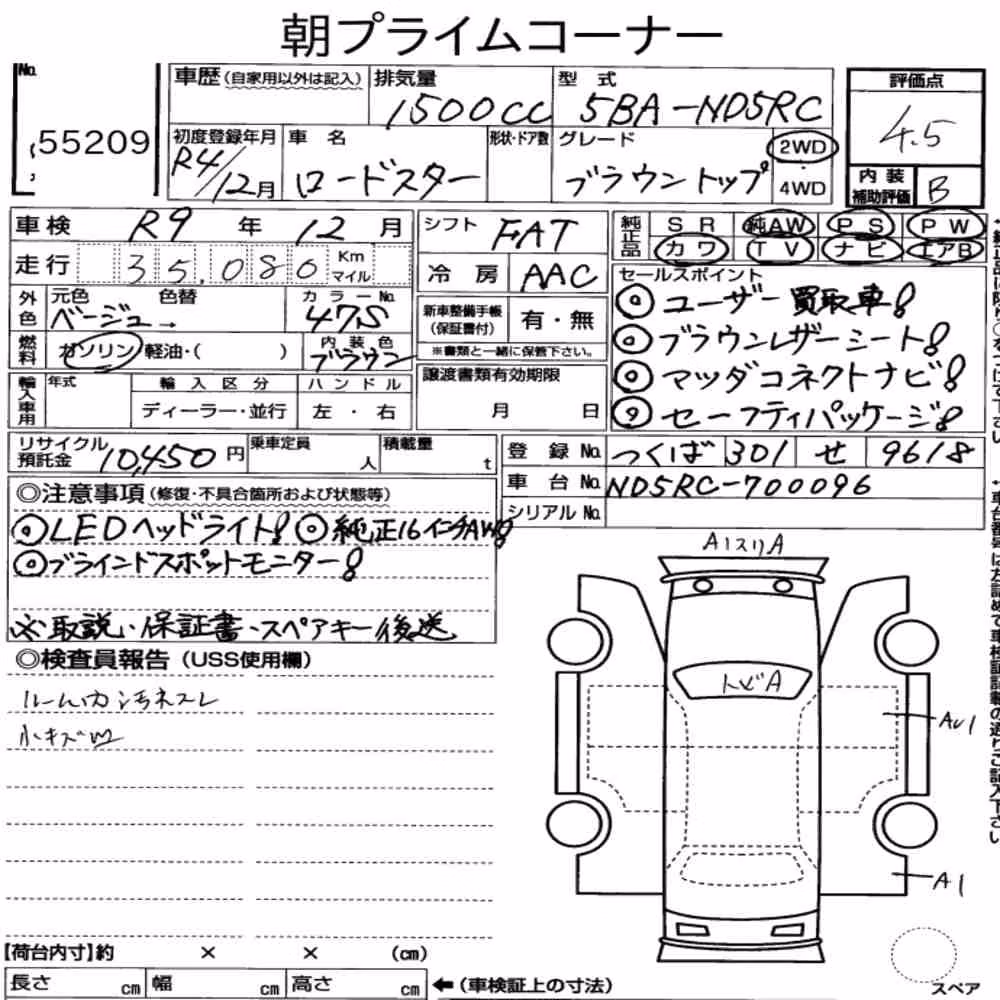 朝プライムコーナー
No.
55209
車歴(自家用以外は記入)
排気量
1500cc
型 式
5BA-ND5RC
評価点
4.5
内装補助評価 B
初度登録年月
R4/12月
車 名
ロードスター
形状・ドア数
グレード
ブラウントップ
2WD
・
4WD
車検 R9 年 12 月
シフト FAT
純正品 SR 純AW PS PW
カワ TV ナビ エアB
走行 35,080 Km マイル
冷房 AAC
セールスポイント
◎ユーザー買取車!
◎ブラウンレザーシート!
◎マツダコネクトナビ!
◎セーフティパッケージ!
外色 元色 色替 カラーNo.
ベージュ→ 47S
新車整備手帳(保証書付) 有・無
※書類と一緒に保管下さい。
燃料 ガソリン 軽油・( )
内装色
ブラウン
輸入車用 年式 輸入区分 ハンドル
ディーラー・並行 左・右
譲渡書類有効期限
月 日
リサイクル預託金 10,450円
乗車定員 人
積載量 t
登録No. つくば 301 せ 9618
車台No. ND5RC-700096
シリアルNo.
◎注意事項(修復・不具合箇所および状態等)
◎LEDヘッドライト! ◎純正16インチAW!
◎ブラインドスポットモニター!
※取説・保証書・スペアキー後送
◎検査員報告(USS使用欄)
小キズ凹
A1スリA
トビA
AU1
A1
スペア
【荷台内寸】約 × × (cm)
長さ cm 幅 cm 高さ cm
←(車検証上の寸法)